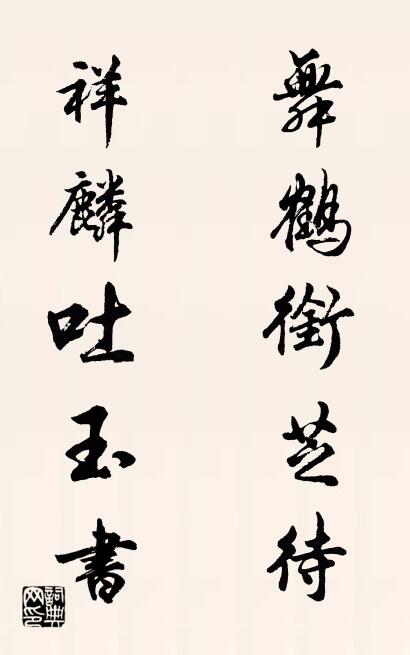 舞鶴銜芝待
祥麟吐玉書
詞典網印